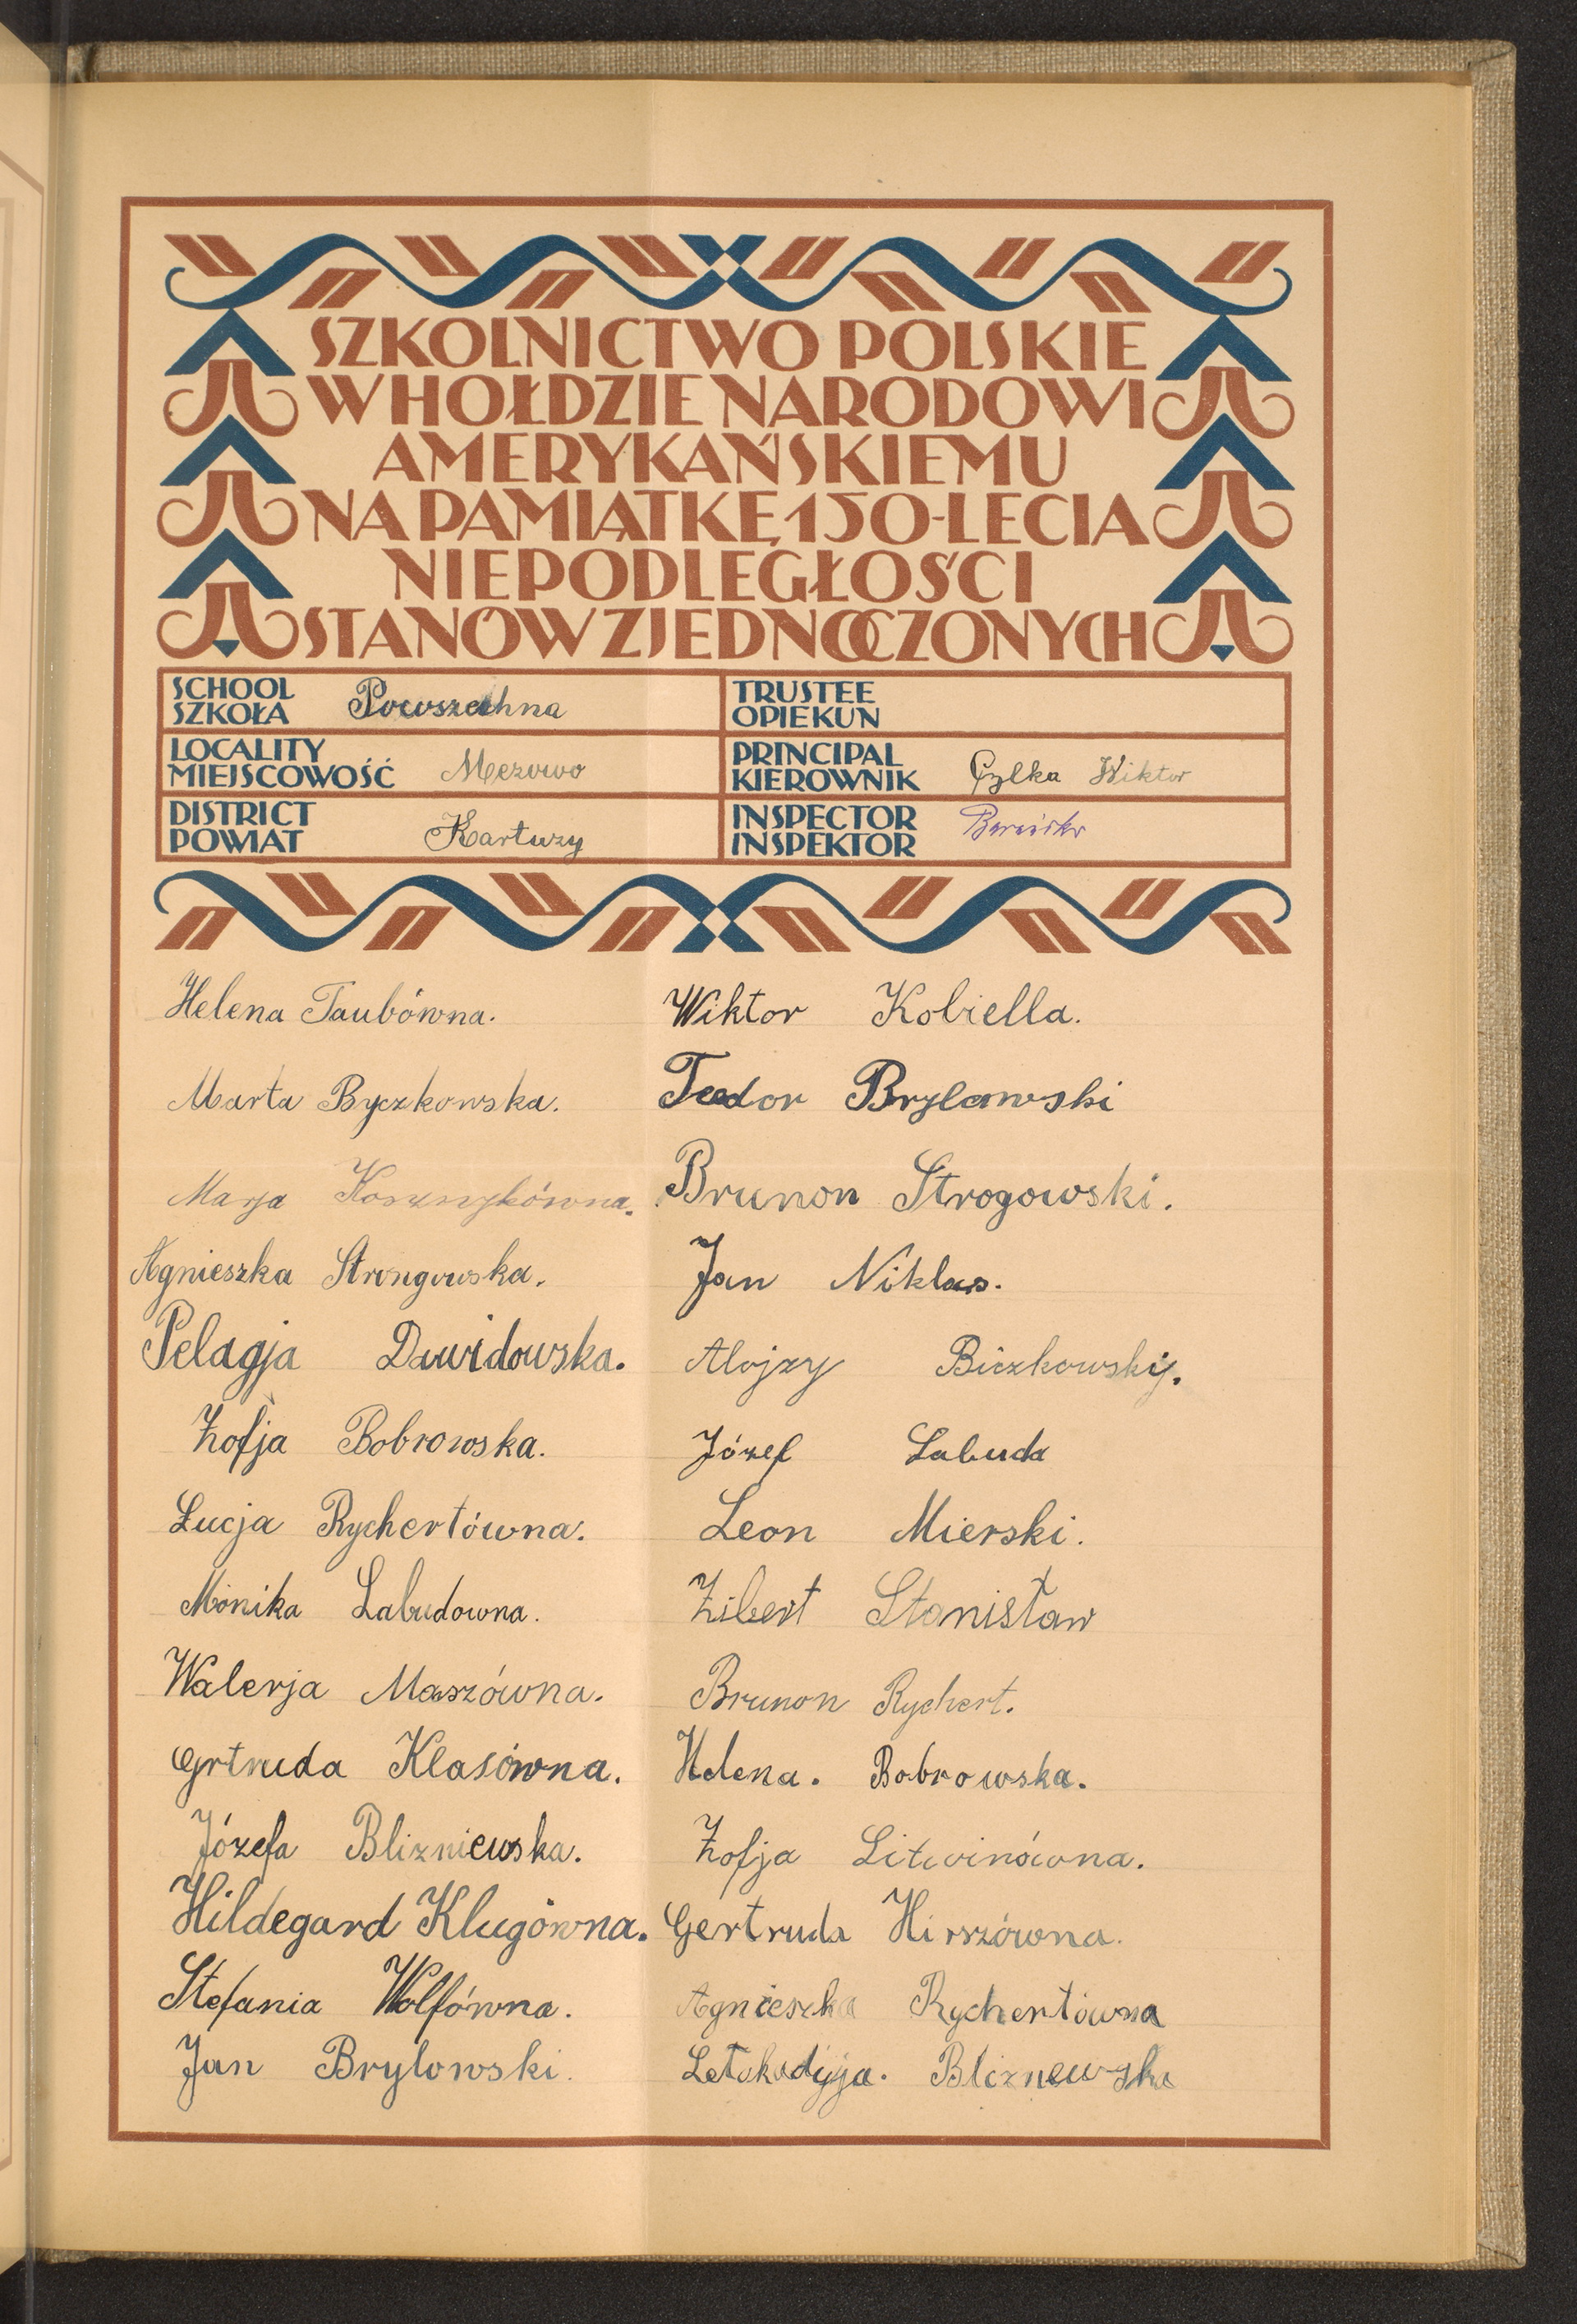 SZKOLNICTWO POLSKIE
W HOŁDZIE NARODOWI
AMERYKAŃSKIEMU
NA PAMIĄTKĘ 150-LECIA
NIEPODLEGŁOŚCI
STANÓW ZJEDNOCZONYCH
SCHOOL
SZKOŁA Powszechna
TRUSTEE
OPIEKUN
LOCALITY
MIEJSCOWOŚĆ Mezowo
PRINCIPAL
KIEROWNIK Cylka Wiktor
DISTRICT
POWIAT Kartuzy
INSPECTOR
INSPEKTOR
Helena Taubówna.
Marta Byczkowska.
Marja
Agnieszka Strongowska.
Pelagja Dawidowska.
Zofja Bobrowska.
Łucja Rychertówna.
Monika Labudowna.
Walerja Maszówna.
Grtruda Klasówna.
Józefa Blizniewska.
Hildegard Klugówna.
Stefania Wolfówna.
Jan Brylowski.
Wiktor Kobiella.
Teodor Brylawski
Brunon Strogowski.
Jan Niklas.
Alojzy Biczkowskij.
Józef Labuda
Leon Mierski.
Zibert Stanisław
Brunon Rychert.
Helena. Bobrowska.
Zofja Litwinówna.
Gertruda Hirszówna.
Agnieszka Rychertówna
Bliznewska